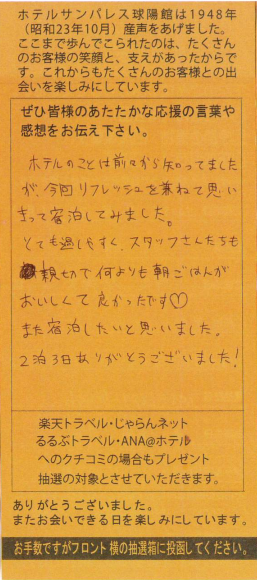 ホテルサンパレス球陽館は1948年
（昭和23年10月）産声をあげました。
ここまで歩んでこられたのは、たくさん
のお客様の笑顔と、支えがあったからで
す。これからもたくさんのお客様との出
会いを楽しみにしています。
ぜひ皆様のあたたかな応援の言葉や
感想をお伝え下さい。
ホテルのことは前々から知ってました
が、今回リフレッシュを兼ねて思い
きって宿泊してみました。
とても過しやすく、スタッフさんたちも
親切で何よりも朝ごはんが
おいしくて良かったです♡
また宿泊したいと思いました。
2泊3日ありがとうございました!
楽天トラベル・じゃらんネット
るるぶトラベル・ANA@ホテル
へのクチコミの場合もプレゼント
抽選の対象とさせていただきます。
ありがとうございました。
またお会いできる日を楽しみにしています。
お手数ですがフロント横の抽選箱に投函してください。